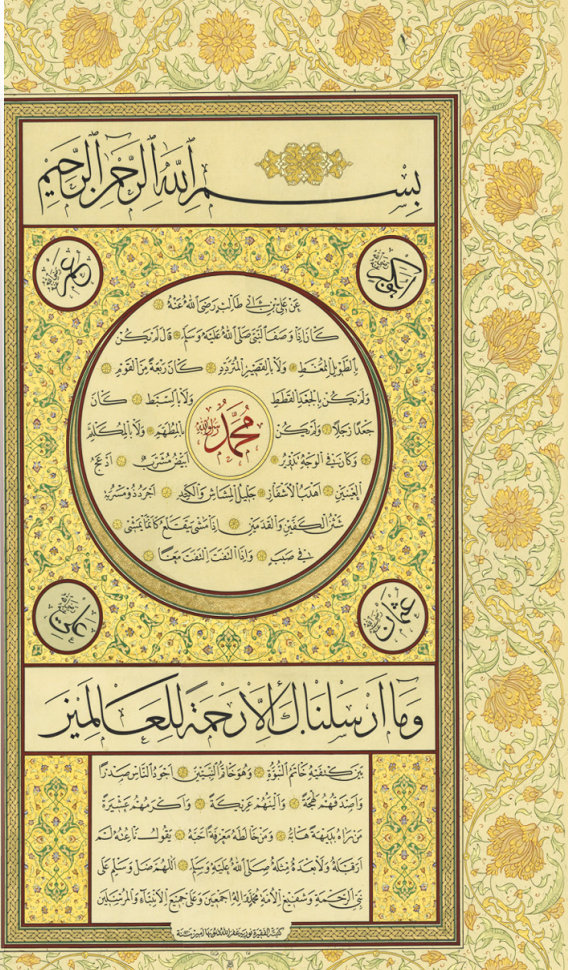 بِسْمِ ٱللَّهِ ٱلرَّحْمَٰنِ ٱلرَّحِيمِ
ابوبكر رضي الله عنه
عمر رضي الله عنه
عَنْ عَلِيِّ بْنِ أَبِي طَالِبٍ رَضِيَ اللهُ عَنْهُ
كَانَ إِذَا وَصَفَ النَّبِيَّ صَلَّى اللهُ عَلَيْهِ وَسَلَّمَ قَالَ لَمْ يَكُنْ
بِالطَّوِيلِ الْمُمَّغِطِ وَلَا بِالْقَصِيرِ الْمُتَرَدِّدِ كَانَ رَبْعَةً مِنَ الْقَوْمِ
وَلَمْ يَكُنْ بِالْجَعْدِ الْقَطَطِ وَلَا بِالسَّبِطِ كَانَ
جَعْدًا رَجِلًا وَلَمْ يَكُنْ بِالْمُطَهَّمِ وَلَا بِالْمُكَلْثَمِ
مُحَمَّدٌ
وَكَانَ فِي الْوَجْهِ تَدْوِيرٌ أَبْيَضُ مُشْرَبٌ أَدْعَجُ
الْعَيْنَيْنِ أَهْدَبُ الْأَشْفَارِ جَلِيلُ الْمُشَاشِ وَالْكَتَدِ أَجْرَدُ ذُو مَسْرُبَةٍ
شَثْنُ الْكَفَّيْنِ وَالْقَدَمَيْنِ إِذَا مَشَى يَتَقَلَّعُ كَأَنَّمَا يَمْشِي
فِي صَبَبٍ وَإِذَا الْتَفَتَ الْتَفَتَ مَعًا
عثمان رضي الله عنه
علي رضي الله عنه
وَمَا أَرْسَلْنَاكَ إِلَّا رَحْمَةً لِلْعَالَمِينَ
بَيْنَ كَتِفَيْهِ خَاتَمُ النُّبُوَّةِ وَهُوَ خَاتَمُ النَّبِيِّينَ أَجْوَدُ النَّاسِ صَدْرًا
وَأَصْدَقُهُمْ لَهْجَةً وَأَلْيَنُهُمْ عَرِيكَةً وَأَكْرَمُهُمْ عَشِيرَةً
مَنْ رَآهُ بَدِيهَةً هَابَهُ وَمَنْ خَالَطَهُ مَعْرِفَةً أَحَبَّهُ يَقُولُ نَاعِتُهُ لَمْ
أَرَ قَبْلَهُ وَلَا بَعْدَهُ مِثْلَهُ صَلَّى اللهُ عَلَيْهِ وَسَلَّمَ اللَّهُمَّ صَلِّ وَسَلِّمْ عَلَى
نَبِيِّ الرَّحْمَةِ وَشَفِيعِ الْأُمَّةِ مُحَمَّدٍ وَآلِهِ أَجْمَعِينَ وَعَلَى جَمِيعِ الْأَنْبِيَاءِ وَالْمُرْسَلِينَ